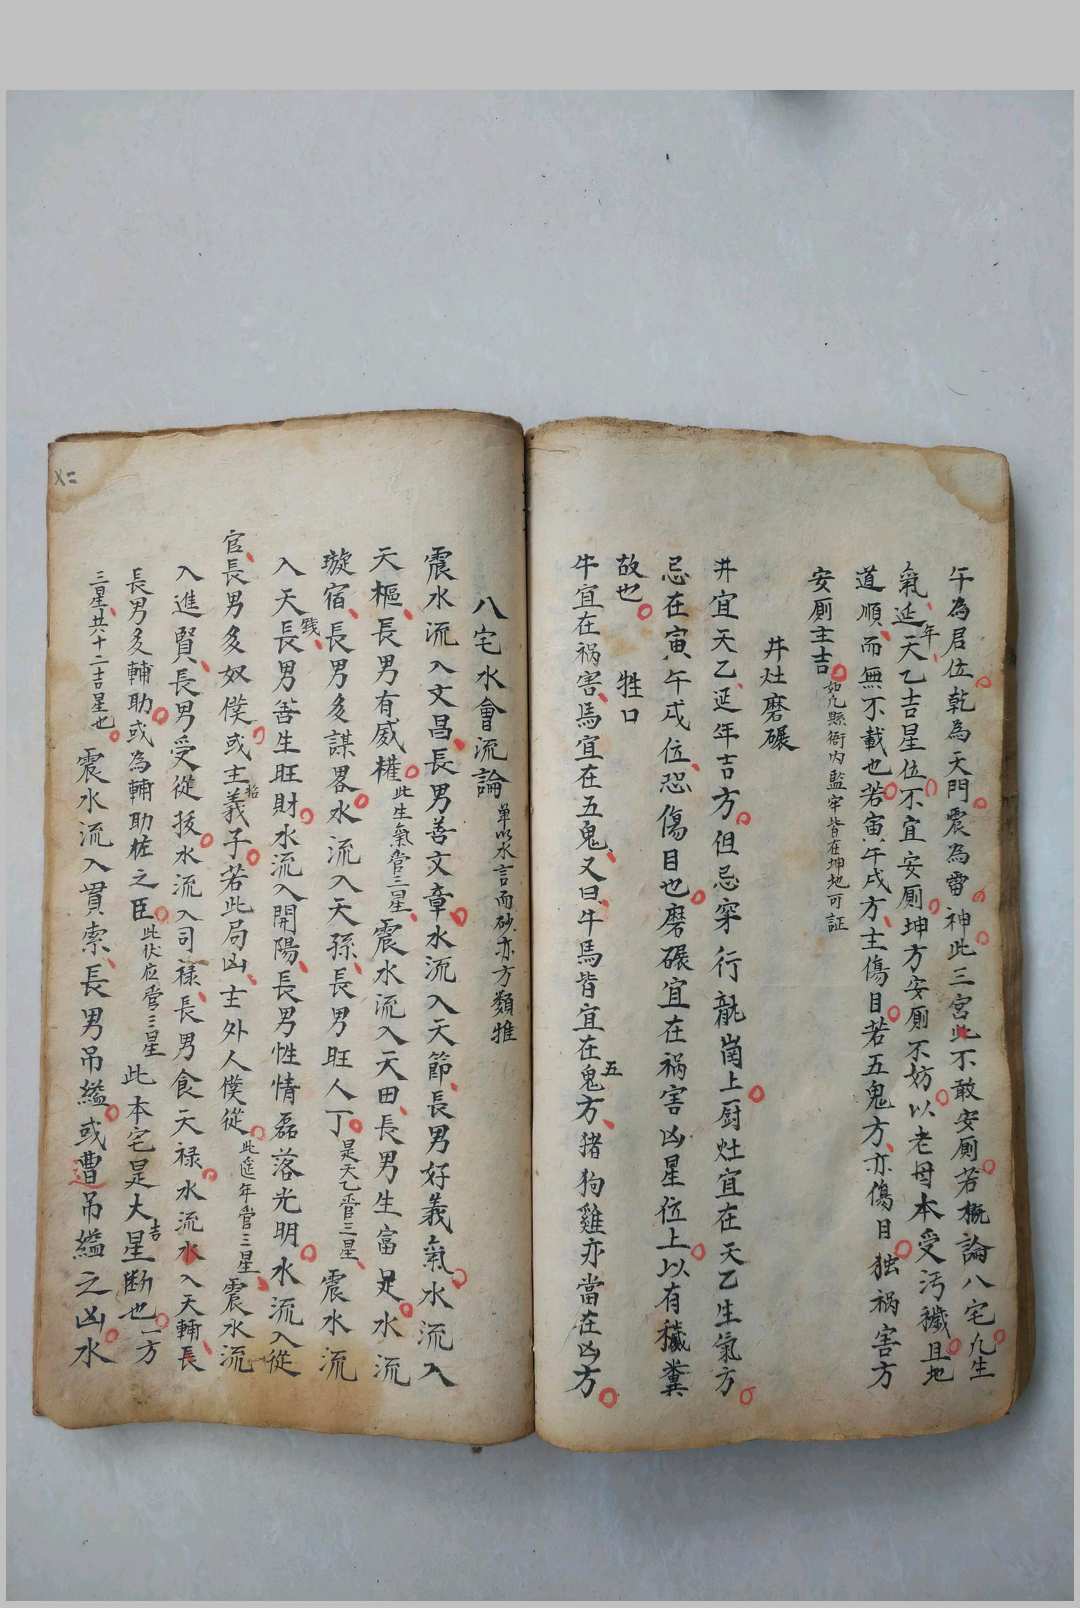 午為君位乾為天門震為雷神此三宮此不敢安厠若概論八宅凡生
氣延年天乙吉星位不宜安厠坤方安厠不妨以老母本受污穢且地
道順而無不載也若寅午戌方主傷目若五鬼方亦傷目独祸害方
安厠主吉如凡縣衙内監牢皆在坤地可証
井灶磨碾
井宜天乙延年吉方但忌穿行龍崗上厨灶宜在天乙生氣方
忌在寅午戌位恐傷目也磨碾宜在祸害凶星位上以有穢糞
故也 牲口
牛宜在祸害馬宜在五鬼又曰牛馬皆宜在五鬼方猪狗雞亦當在凶方
八宅水會流論单以水言而砂亦方類推
震水流入文昌長男善文章水流入天節長男好義氣水流入
天樞長男有威權此生氣管三星震水流入天田長男生富足水流
璇宿長男多謀畧水流入天孫長男旺人丁是天乙管三星震水流
入天錢長男善生旺財水流入開陽長男性情磊落光明水流入從
官長男多奴僕或主招義子若此局凶主外人僕從此延年管三星震水流
入進賢長男受從拔水流入司禄長男食天禄水流水入天輔長
長男多輔助或為輔助桩之臣此伏位管三星此本宅是大吉星断也一方
三星共六十二吉星也震水流入貫索長男吊縊或遭吊縊之凶水